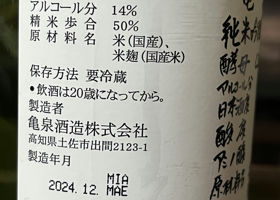 アルコール分 14%
精米歩合 50%
原材料名 米(国産)、
米麹(国産米)
保存方法 要冷蔵
•飲酒は20歳になってから。
製造者
亀泉酒造株式会社
高知県土佐市出間2123-1
製造年月
2024.12. MIA
MAE
純米吟
酵母
アルコール分
日本酒度
酸度
原材料